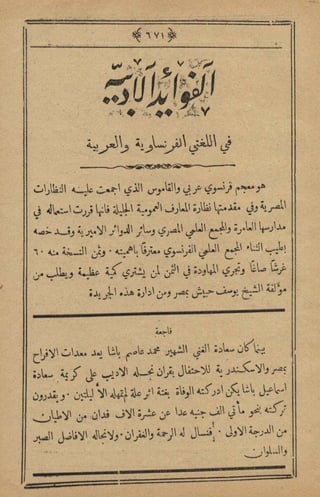 ﴿٦٧١﴾
الفوائد الادبية
في اللغتي الفرنساوية والعربية
هو معجم فرنسوي عربي والقاموس الذي اجمعت عليه النظارات
المصرية وفي مقدمتها نظارة المعارف العمومية الجليلة فانها قررت استعماله في
مدارسها العامرة والمجمع العلمي المصري وسائر الدوائر الاميرية وقد خصه
بطيب الثناء المجمع العلمي الفرنسوي معترفًا باهميته ٠ وثمن النسخة منه ٦٠
غرشًا صاغًا وتجري المهاودة في الثمن لمن يشتري كمية عظيمة ويطلب من
مؤلفه الشيخ يوسف حبيش بمصر ومن ادارة هذه الجريدة
فاجعة
بينما كان سعادة الغني الشهير محمد عاصم باشا يعد معدات الافراح
بمصر والاسكندرية للاحتفال بقران نجله الاديب على كريمة سعادة
اسماعيل باشا يكن ادركته الوفاة بغتة اثر علة لم تمهله الا ليلتين ٠ ويقدرون
تركته بنحو مأتي الف جنيه عدا عن عشرة الاف فدان من الاطيان
من الدرجة الاولى ٠ فنسال له الرحمة والغفران ٠ ولانجاله الافاضل الصبر
والسلوان